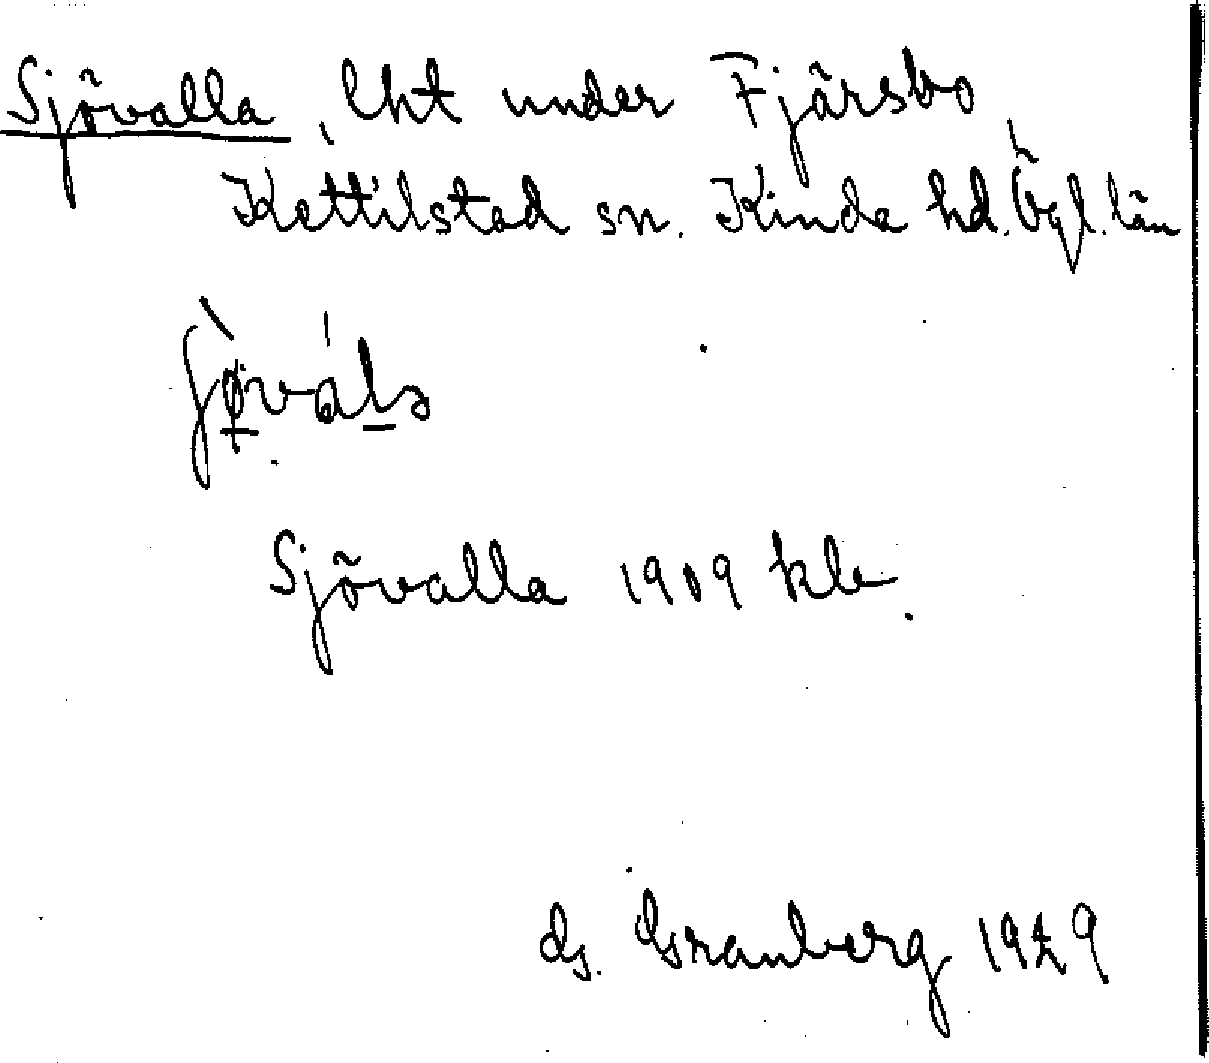 Sjövalla, lht under Fjärsbo
Kättilstad sn. Kinda hd. Ögl. län
Sjövalla 1909 kle.
G. Granberg 1929